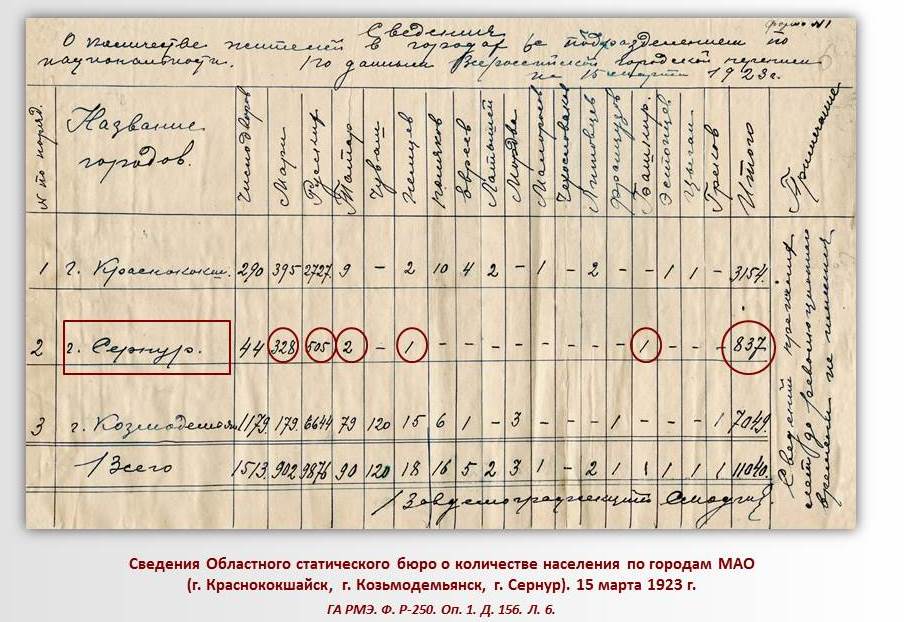 Форма №1
Сведения
о количестве жителей в городах с подразделением по
национальности. По данным Всероссийской городской переписи
на 15 марта 1923 г.
№ по поряд. Название городов. Число дворов Мари Русских Татар Чуваш Немцев Поляков Евреев Латышей Мордва Малороссов Чехословаков Литовцев Французов Башкир. Эстонцев Цыган Греков Итого Примечание
1 г. Краснококш. 290 395 2727 9 - 2 10 4 2 - 1 - 2 - - 1 1 - 3154.
2 г. Сернур. 44 328 505 2 - 1 - - - - - - - - 1 - - - 837
3 г. Козмодемьян. 1179. 179. 6644 79 120 15 6 1 - 3 - - - 1 - - - 1 7049.
Всего 1513. 902 9876 90 120 18 16 5 2 3 1 - 2 1 1 1 1 1 11040.
Сведений
до революционного
времени не имеется.
Сведения Областного статического бюро о количестве населения по городам МАО
(г. Краснококшайск, г. Козьмодемьянск, г. Сернур). 15 марта 1923 г.
ГА РМЭ. Ф. Р-250. Оп. 1. Д. 156. Л. 6.